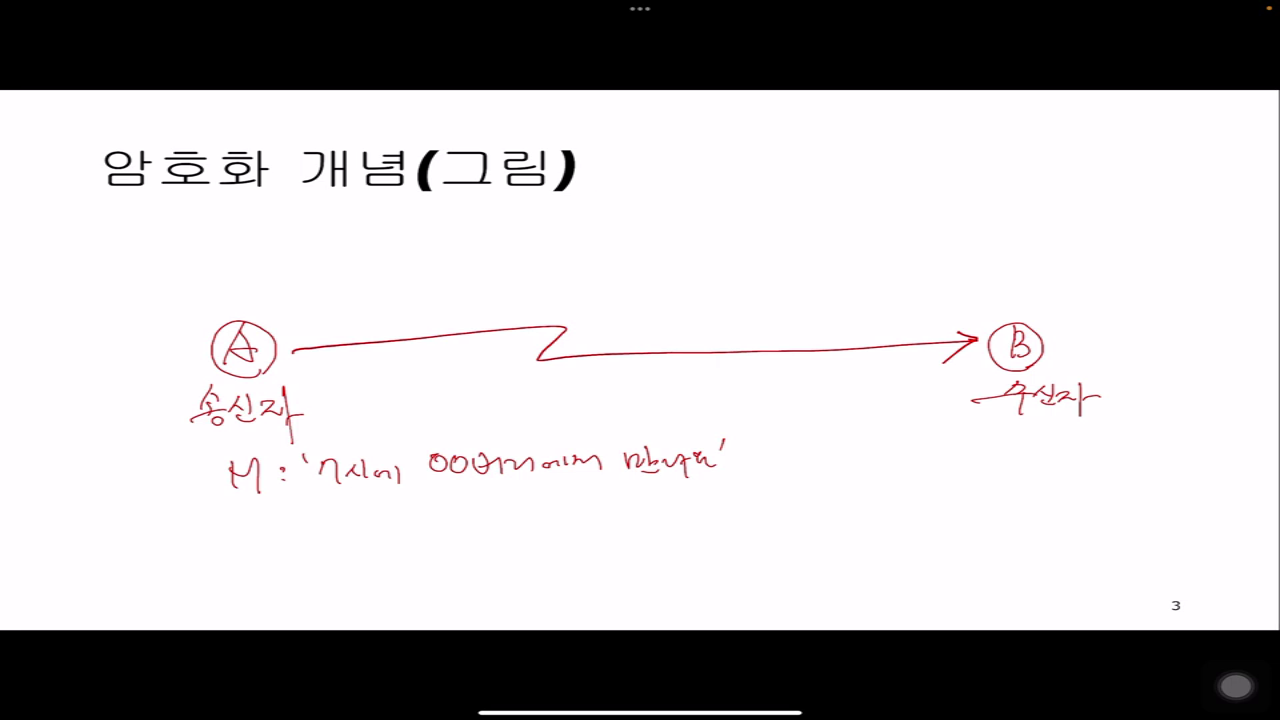 암호화 개념(그림)
A B
송신자 수신자
M : '7시에 OO커피에서 만나요'
3